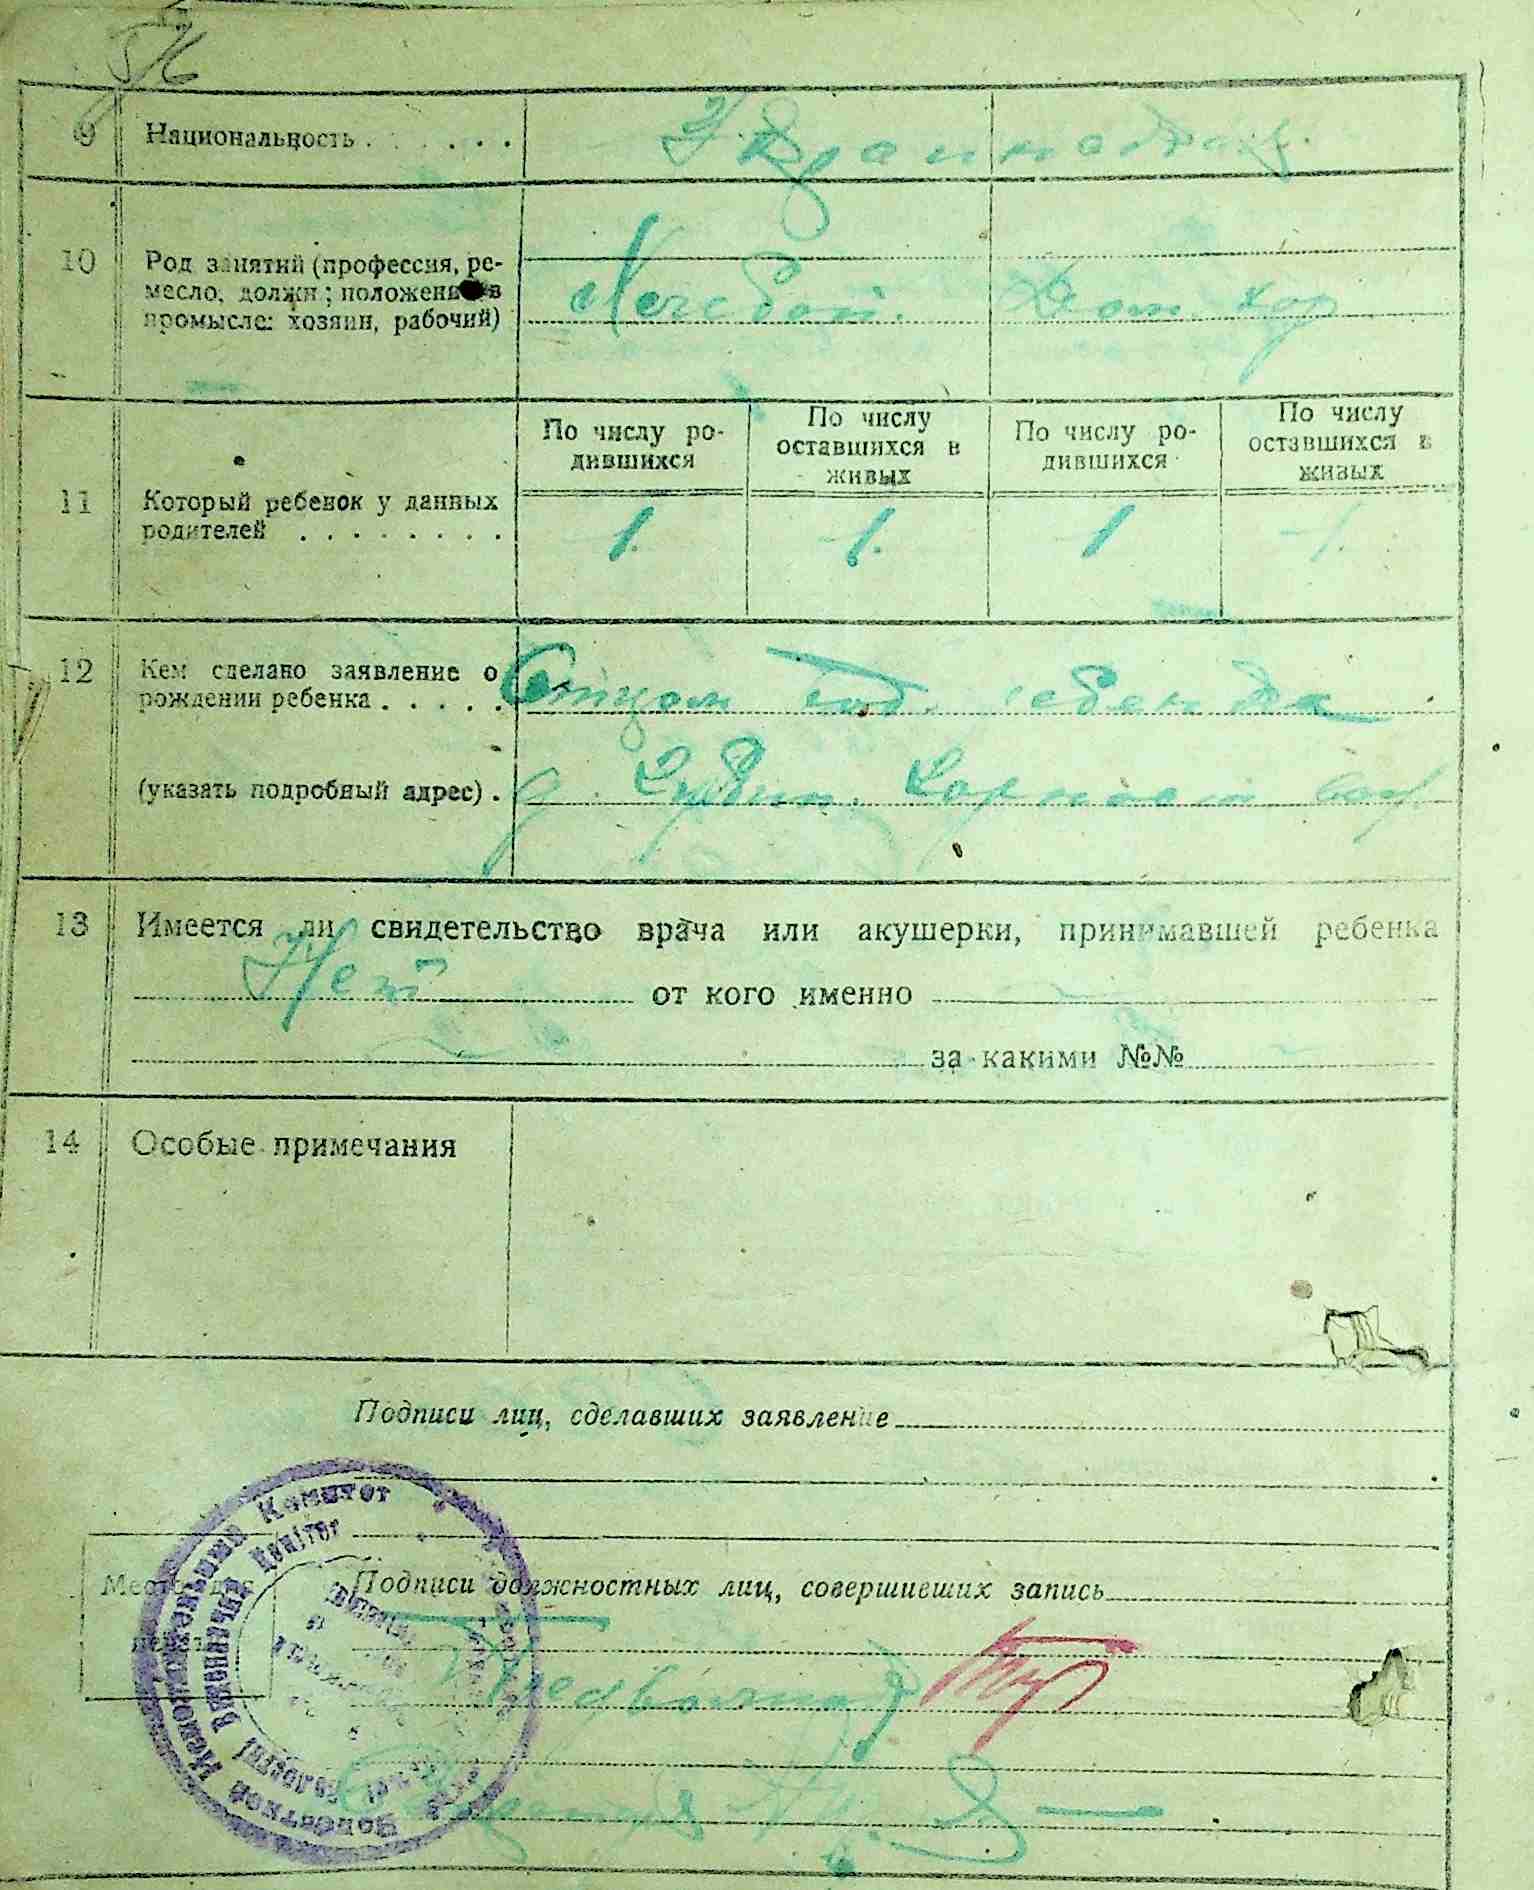 5/6
9 Национальность . . . . . . .
10 Род занятий (профессия, ре-
месло, должн; положение в
промысле: хозяин, рабочий)
Дом. хоз
По числу ро-
дившихся
По числу
оставшихся в
живых
По числу ро-
дившихся
По числу
оставшихся в
живых
11 Который ребенок у данных
родителей . . . . . . . .
1. 1. 1 1.
12 Кем сделано заявление о
рождении ребенка . . . . .
Отцом ребенка
(указать подробный адрес) .
д.
13 Имеется ли свидетельство врача или акушерки, принимавшей ребенка
Нет от кого именно
за какими №№
14 Особые примечания
Подписи лиц, сделавших заявление
Место для
печати
Подписи должностных лиц, совершивших запись
Волостной Исполнительный Комитет